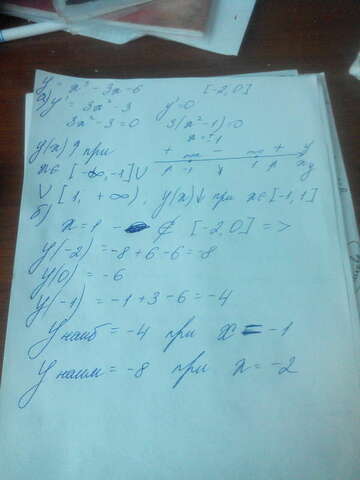 y = x³ - 3x - 6 [-2,0]
а) y' = 3x² - 3 y'=0
3x² - 3 = 0 3(x² - 1) = 0
x = ±1
y(x) ↑ при
+ max - min + y'
-1 1 x y
x ∈ [-∞, -1] ∪
∪ [1, +∞), y(x) ↓ при x ∈ [-1, 1]
б)
x = 1 - ∉ [-2,0] =>
y(-2) = -8 + 6 - 6 = -8
y(0) = -6
y(-1) = -1 + 3 - 6 = -4
y наиб = -4 при x = -1
y наим = -8 при x = -2